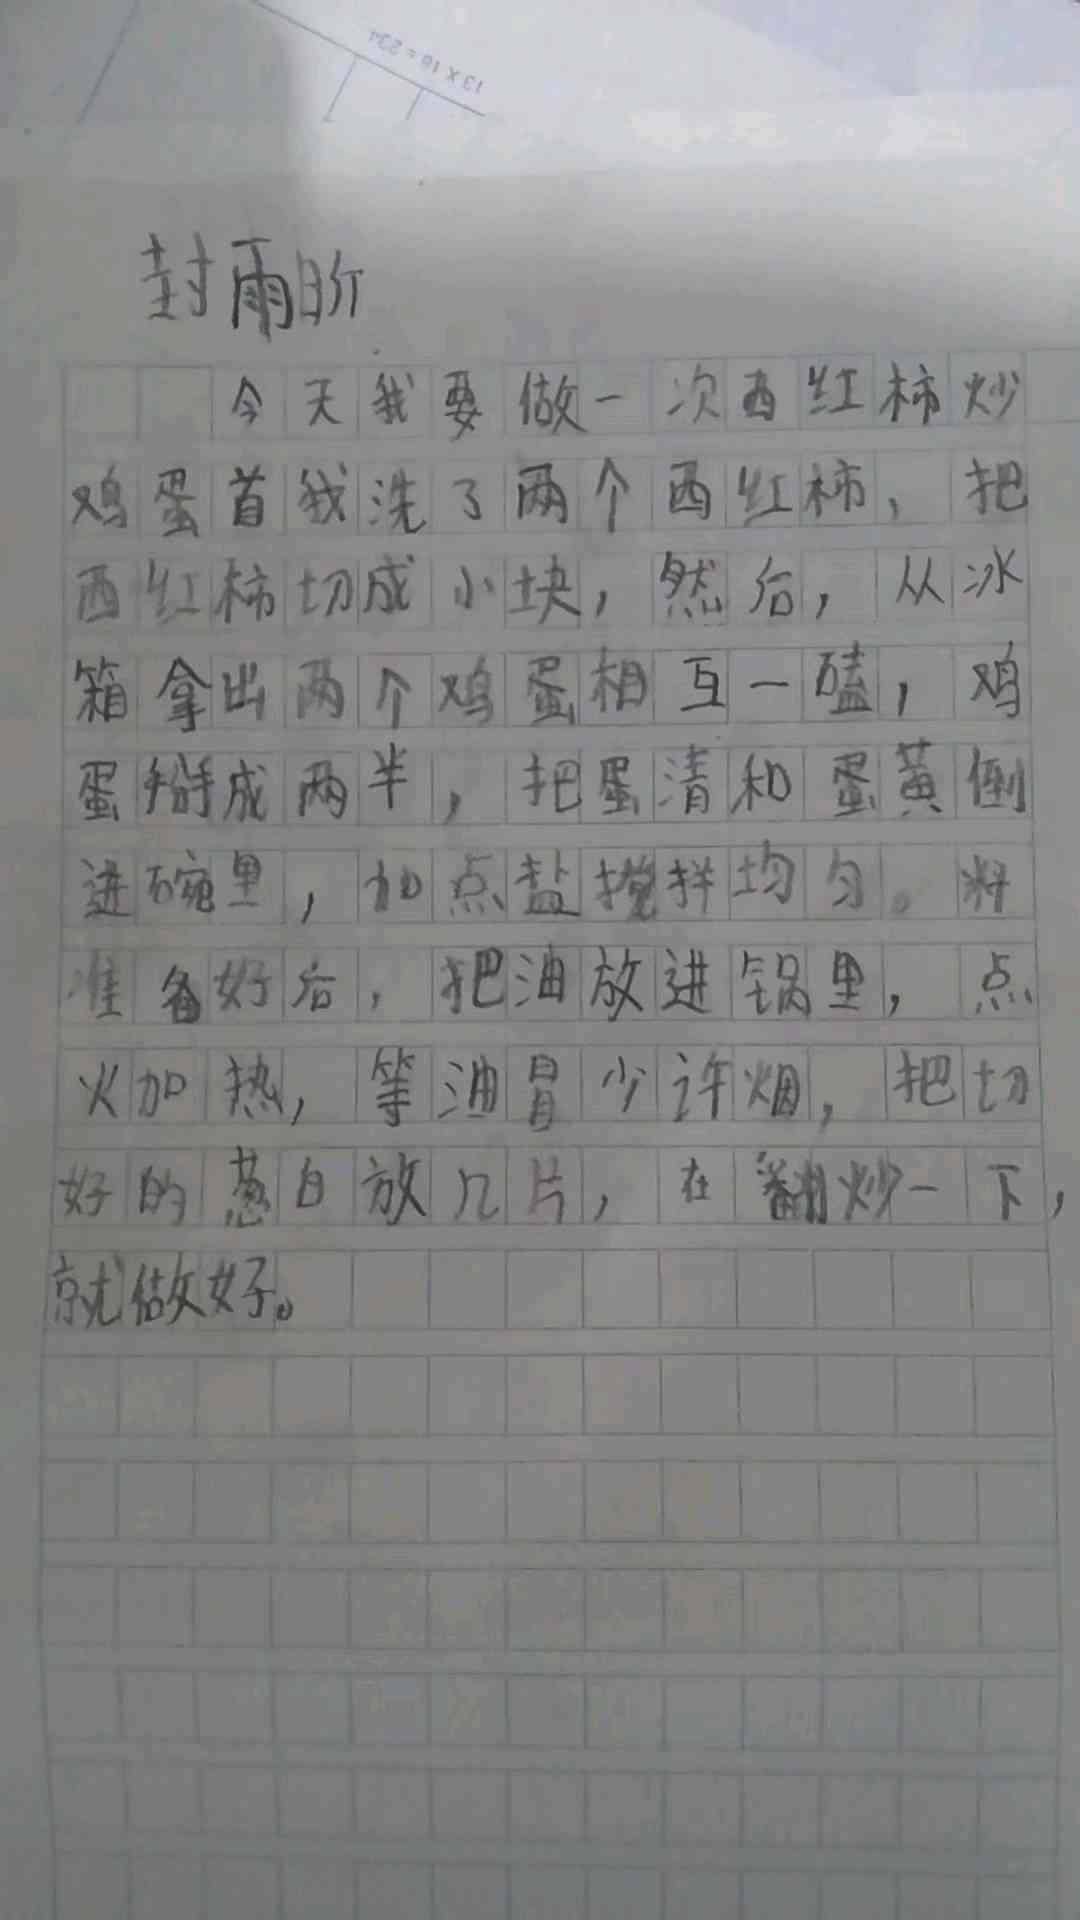 13×18=234
封雨昕
今天我要做一次西红柿炒
鸡蛋首我洗了两个西红柿，把
西红柿切成小块，然后，从冰
箱拿出两个鸡蛋相互一磕，鸡
蛋掰成两半，把蛋清和蛋黄倒
进碗里，加点盐搅拌均匀。料
准备好后，把油放进锅里，点
火加热，等油冒少许烟，把切
好的葱白放几片，在翻炒一下，
就做好。